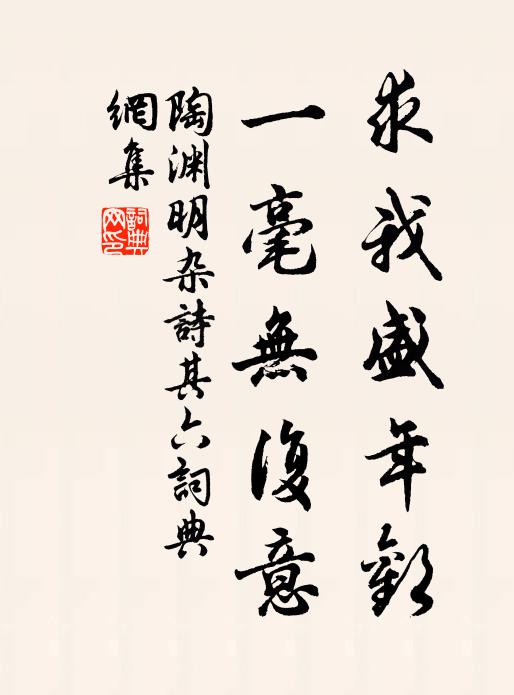 求我盛年歡
一毫無復意
陶渊明杂詩其六詞典
網集
詞典
网印